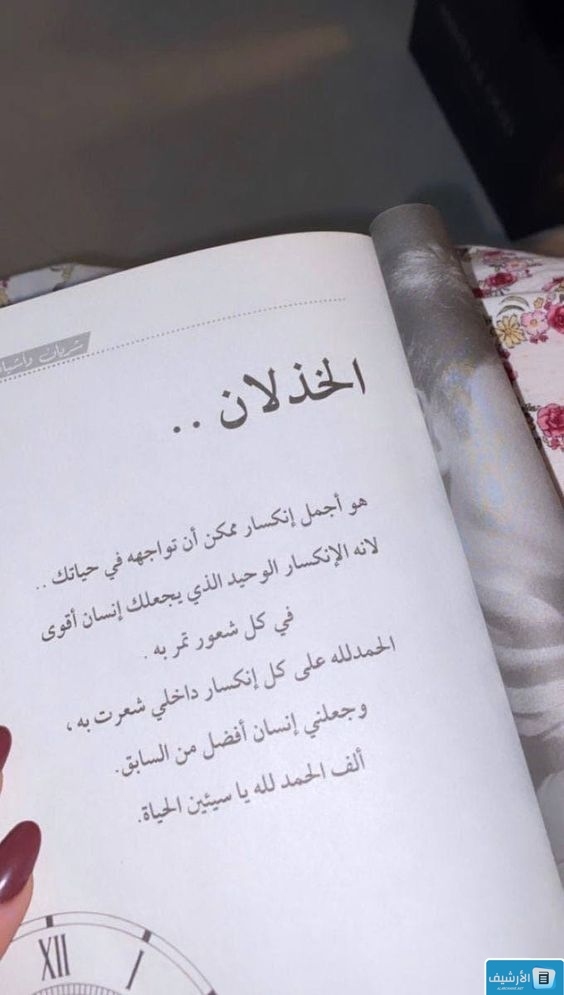 شريان
الخذلان ..
هو أجمل إنكسار ممكن أن تواجهه في حياتك ..
لانه الإنكسار الوحيد الذي يجعلك إنسان أقوى
في كل شعور تمر به .
الحمدلله على كل إنكسار داخلي شعرت به ،
وجعلني إنسان أفضل من السابق.
ألف الحمد لله يا سيئين الحياة.
XII I
الأرشيف